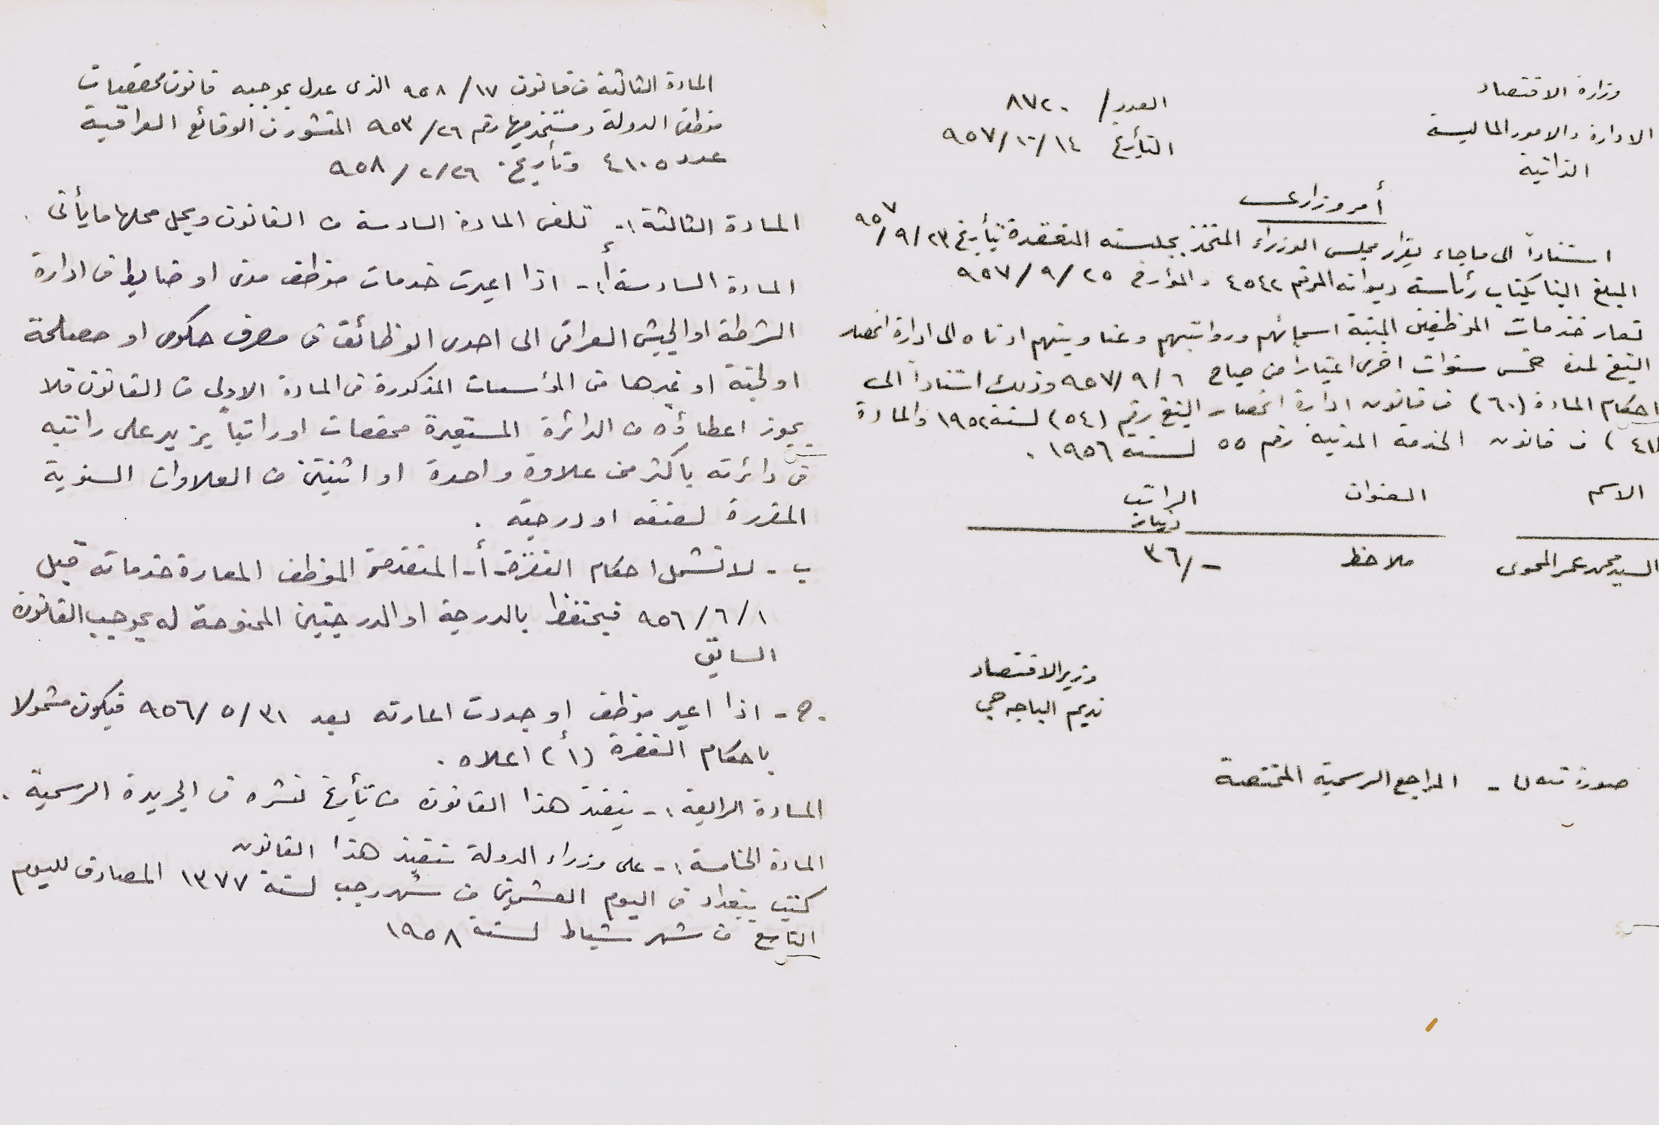 وزارة الاقتصاد
الادارة والامور المالية
الذاتية
العدد/ ٨٧٢٠
التأريخ ٩٥٧/١٠/١٤
أمر وزاري
استناداً الى ماجاء بقرار مجلس الوزراء المتخذ بجلسته المنعقدة بتأريخ ٩٥٧/٩/٢٣
المبلغ الينا بكتاب رئاسة ديوانه المرقم ٤٥٤٢ والمؤرخ ٩٥٧/٩/٢٥
تعار خدمات الموظفين المبينة اسمائهم ورواتبهم وعناوينهم ادناه الى ادارة انحصار
التبغ لمدة خمس سنوات اخرى اعتباراً من صباح ٩٥٧/٩/٦ وذلك استناداً الى
احكام المادة (٦٠) من قانون ادارة انحصار التبغ رقم (٥٤) لسنة ١٩٥٢ والمادة
(٤١) من قانون الخدمة المدنية رقم ٥٥ لسنة ١٩٥٦ .
الاسم العنوان الراتب
دينار
السيد محمد عمر المحوى ملاحظ ٣٦/-
وزير الاقتصاد
نديم الباجه جي
صورة منه الى - المراجع الرسمية المختصة
المادة الثالثة من قانون ١٧/ ٩٥٨ الذى عدل بموجبه قانون مخصصات
موظفى الدولة ومستخدميها رقم ٢٦/ ٩٥٣ المنشور في الوقائع العراقية
عدد ٤١٠٥ وتأريخ ٩٥٨/٢/٢٦
المادة الثالثة :- تلغى المادة السادسة من القانون ويحل محلها مايأتى .
المادة السادسة :أ- اذا اعيرت خدمات موظف مدنى او ضابط في ادارة
الشرطة او الجيش العراقي الى احدى الوظائف في مصرف حكومى او مصلحة
او لجنة او غيرها من المؤسسات المذكورة في المادة الاولى من القانون فلا
يجوز اعطاؤه من الدائرة المستعيرة مخصصات او راتباً يزيد على راتبه
في دائرته باكثر من علاوة واحدة او اثنتين من العلاوات السنوية
المقررة لصنفه او درجته .
ب - لا تشمل احكام الفقرة -أ- المتقدمة الموظف المعارة خدماته قبل
٩٥٦/٦/١ فيحتفظ بالدرجة او الدرجتين الممنوحة له بموجب القانون
السابق
ج - اذا اعير موظف او جددت اعارته بعد ٩٥٦/٥/٣١ فيكون مشمولا
باحكام الفقرة (أ) اعلاه .
المادة الرابعة :- ينفذ هذا القانون من تأريخ نشره في الجريدة الرسمية .
المادة الخامسة :- على وزراء الدولة تنفيذ هذا القانون
كتب ببغداد في اليوم العشرين من شهر رجب لسنة ١٣٧٧ المصادف لليوم
التاسع من شهر شباط لسنة ١٩٥٨